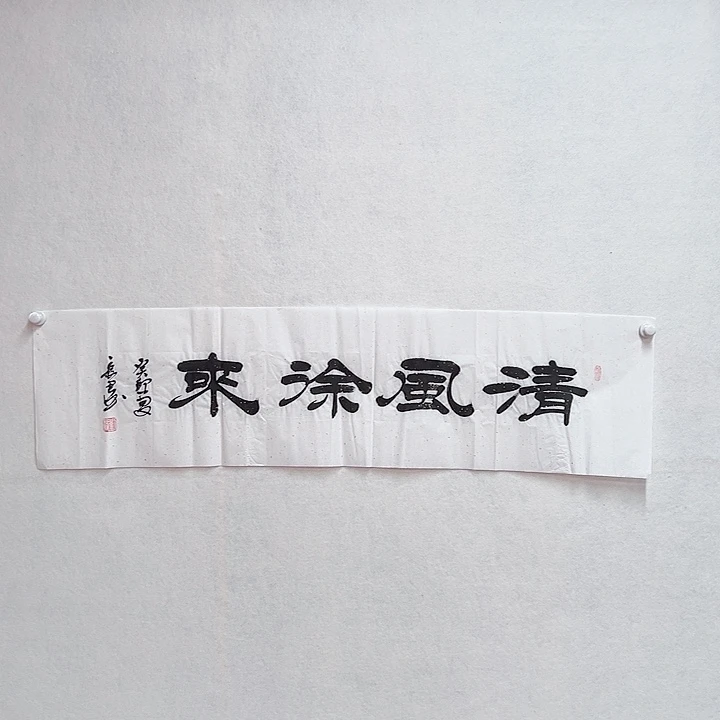 清風徐來
癸卯夏